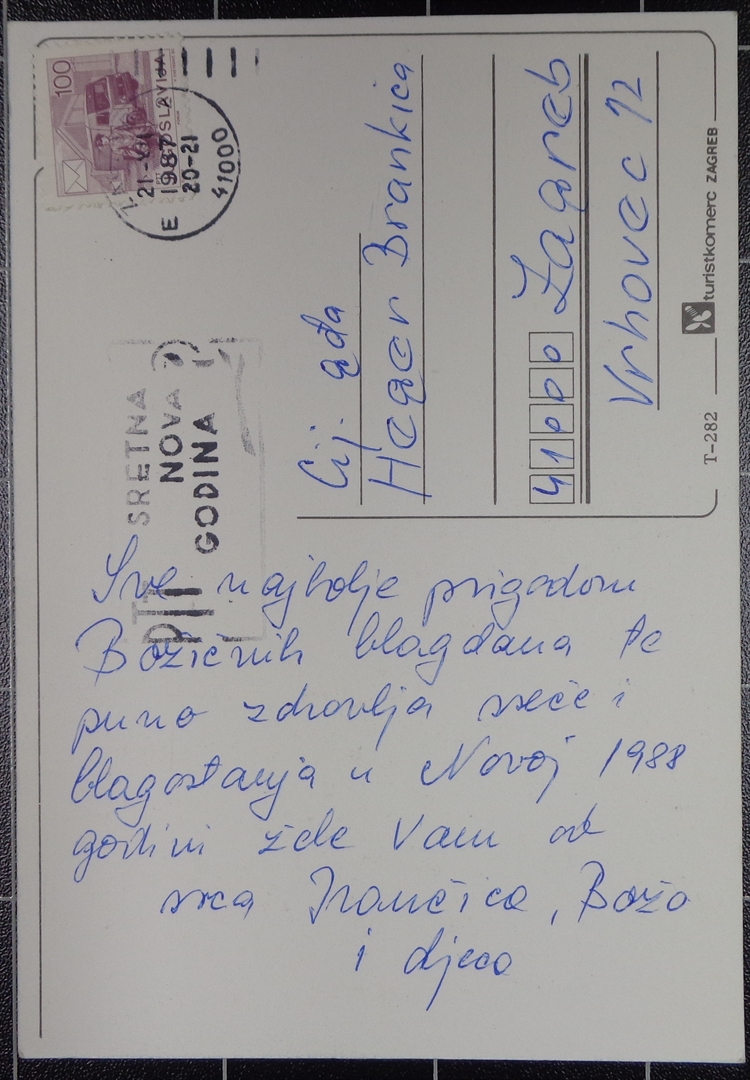 100
JUGOSLAVIJA
1987
20-21
E
41000
PTT
SRETNA
NOVA
GODINA
Cij. gđa
Heger Brankica
41000 Zagreb
Vrhovec 12
T-282
turistkomerc ZAGREB
Sve najbolje prigodom
Božičnih blagdana te
puno zdravlja sreće i
blagostanja u Novoj 1988
godini žele Vam od
srca Ivančica, Božo
i djeca